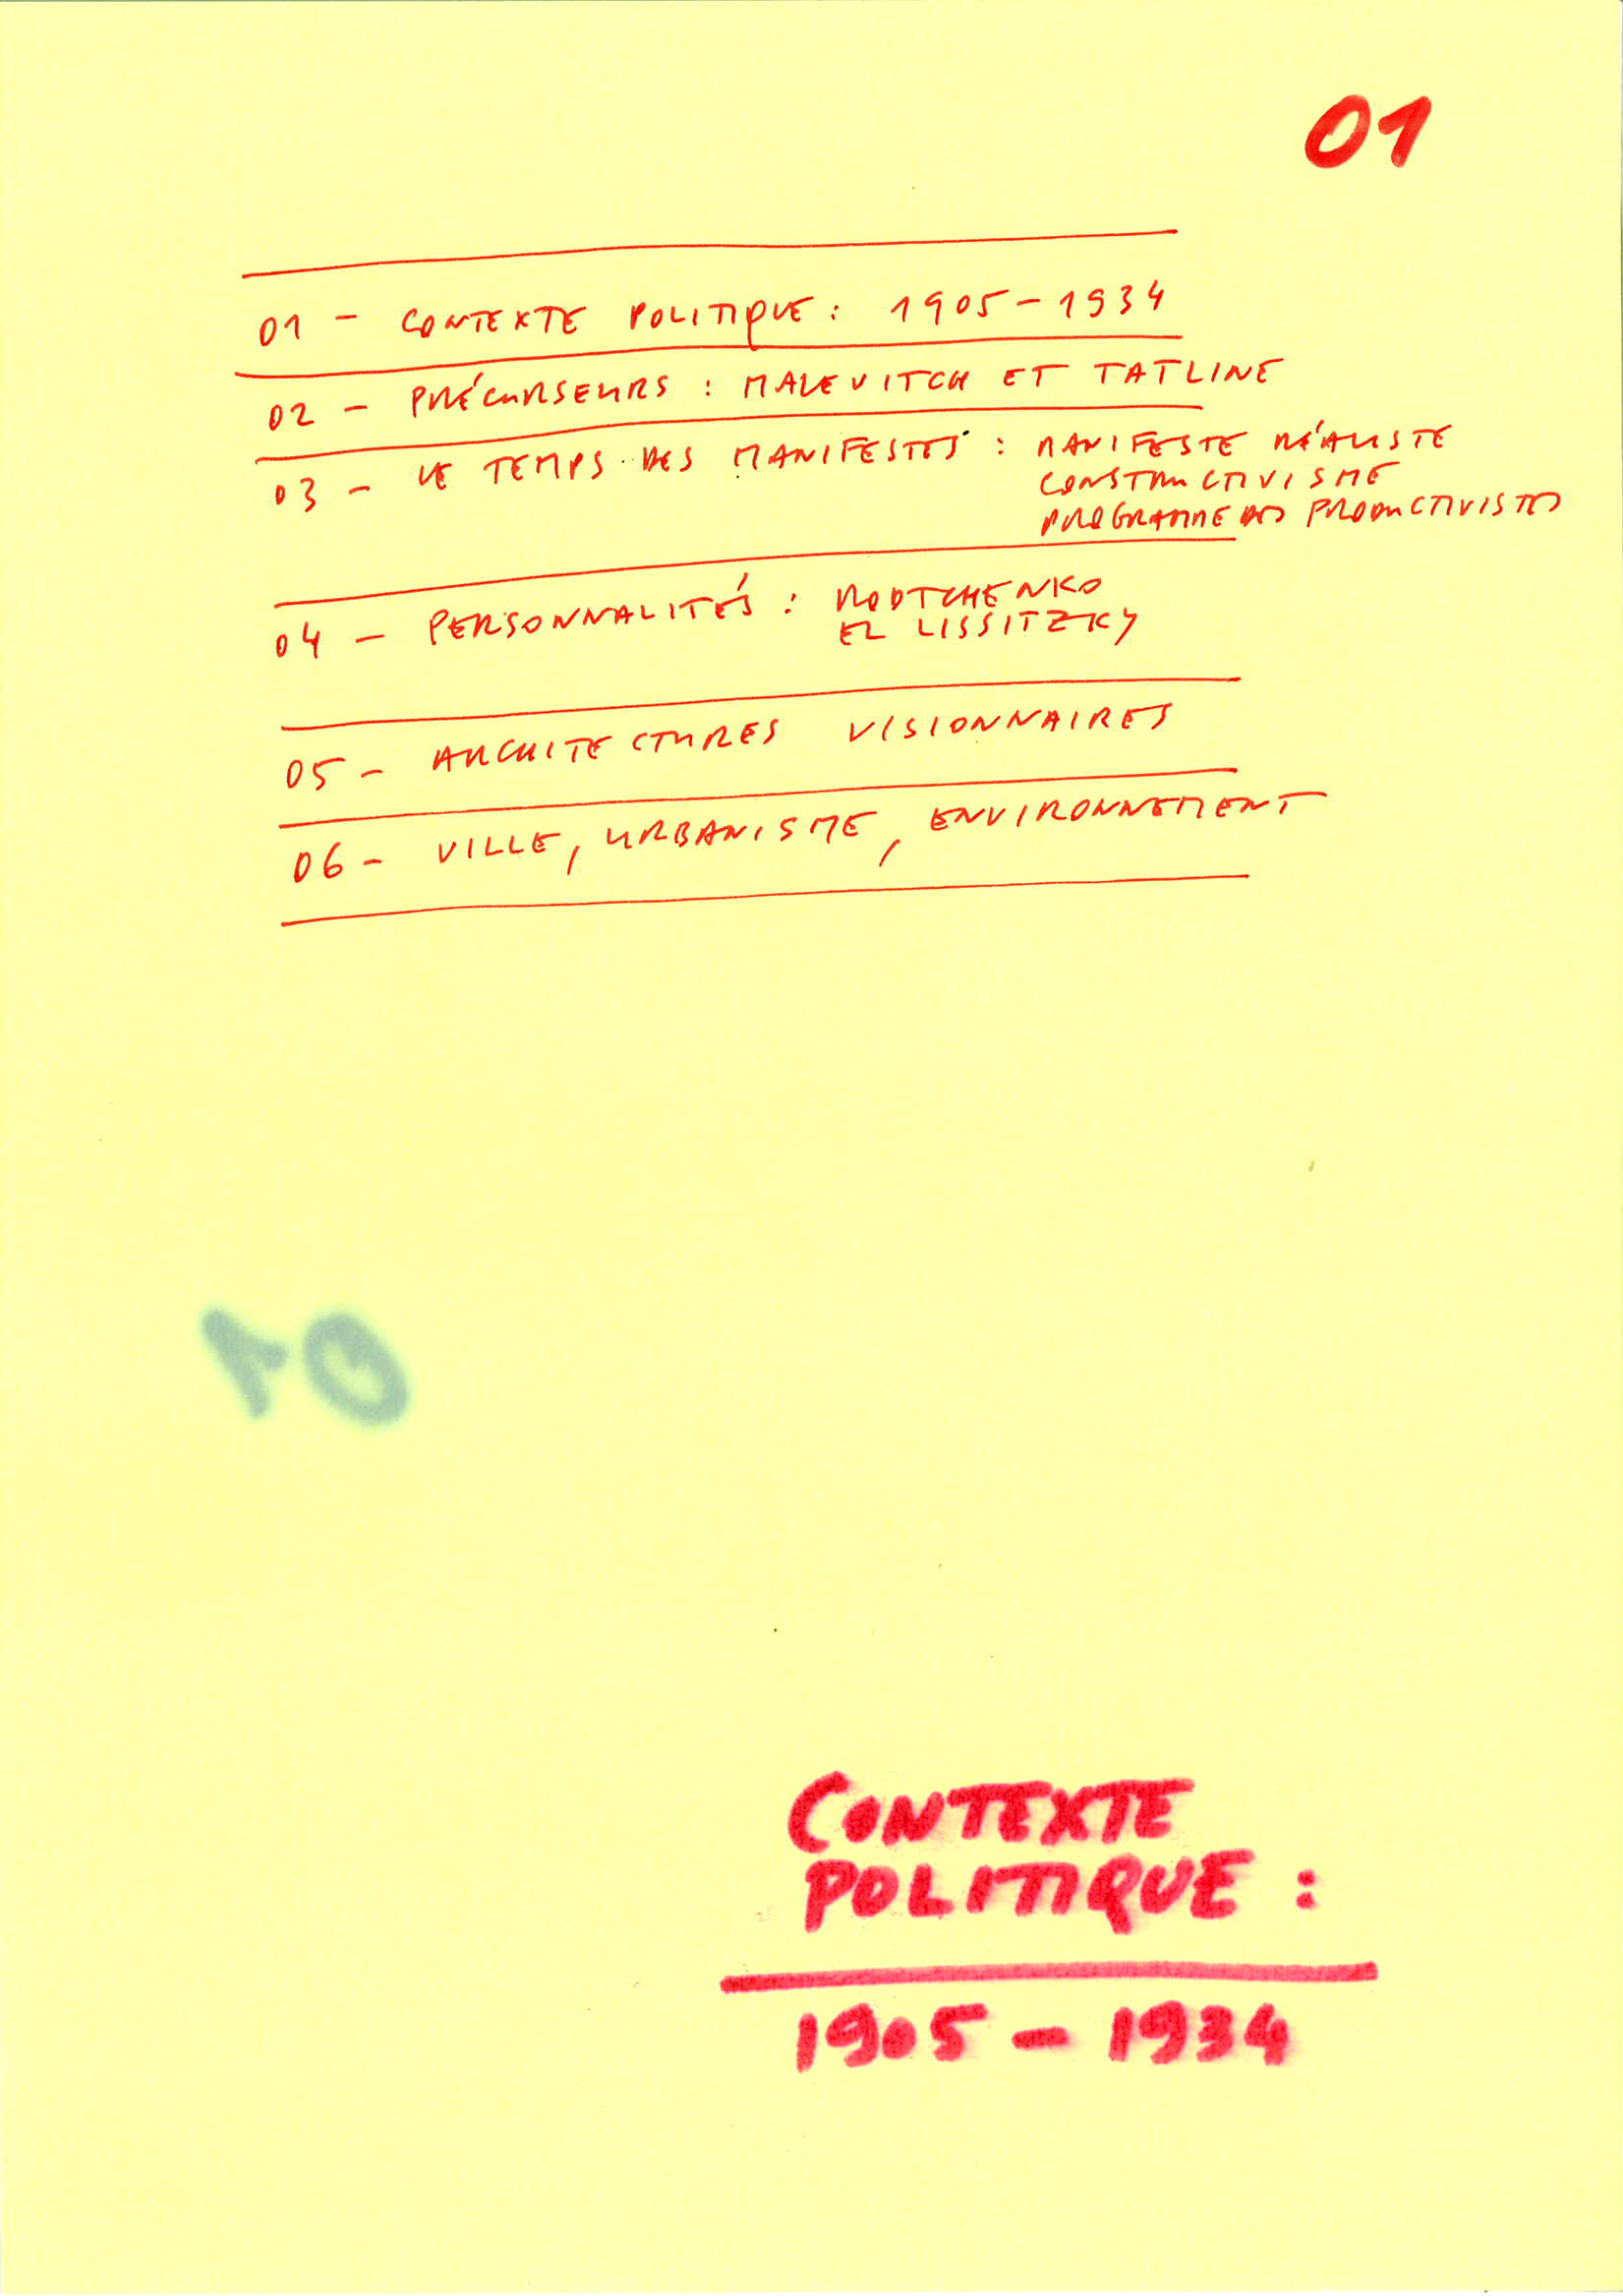 01
01 - CONTEXTE POLITIQUE : 1905 - 1934
02 - PRÉCURSEURS : MALEVITCH ET TATLINE
03 - LE TEMPS DES MANIFESTES : MANIFESTE RÉALISTE
CONSTRUCTIVISME
PROGRAMME DES PRODUCTIVISTES
04 - PERSONNALITÉS : RODTCHENKO
EL LISSITZKY
05 - ARCHITECTURES VISIONNAIRES
06 - VILLE, URBANISME, ENVIRONNEMENT
10
CONTEXTE
POLITIQUE :
1905 - 1934